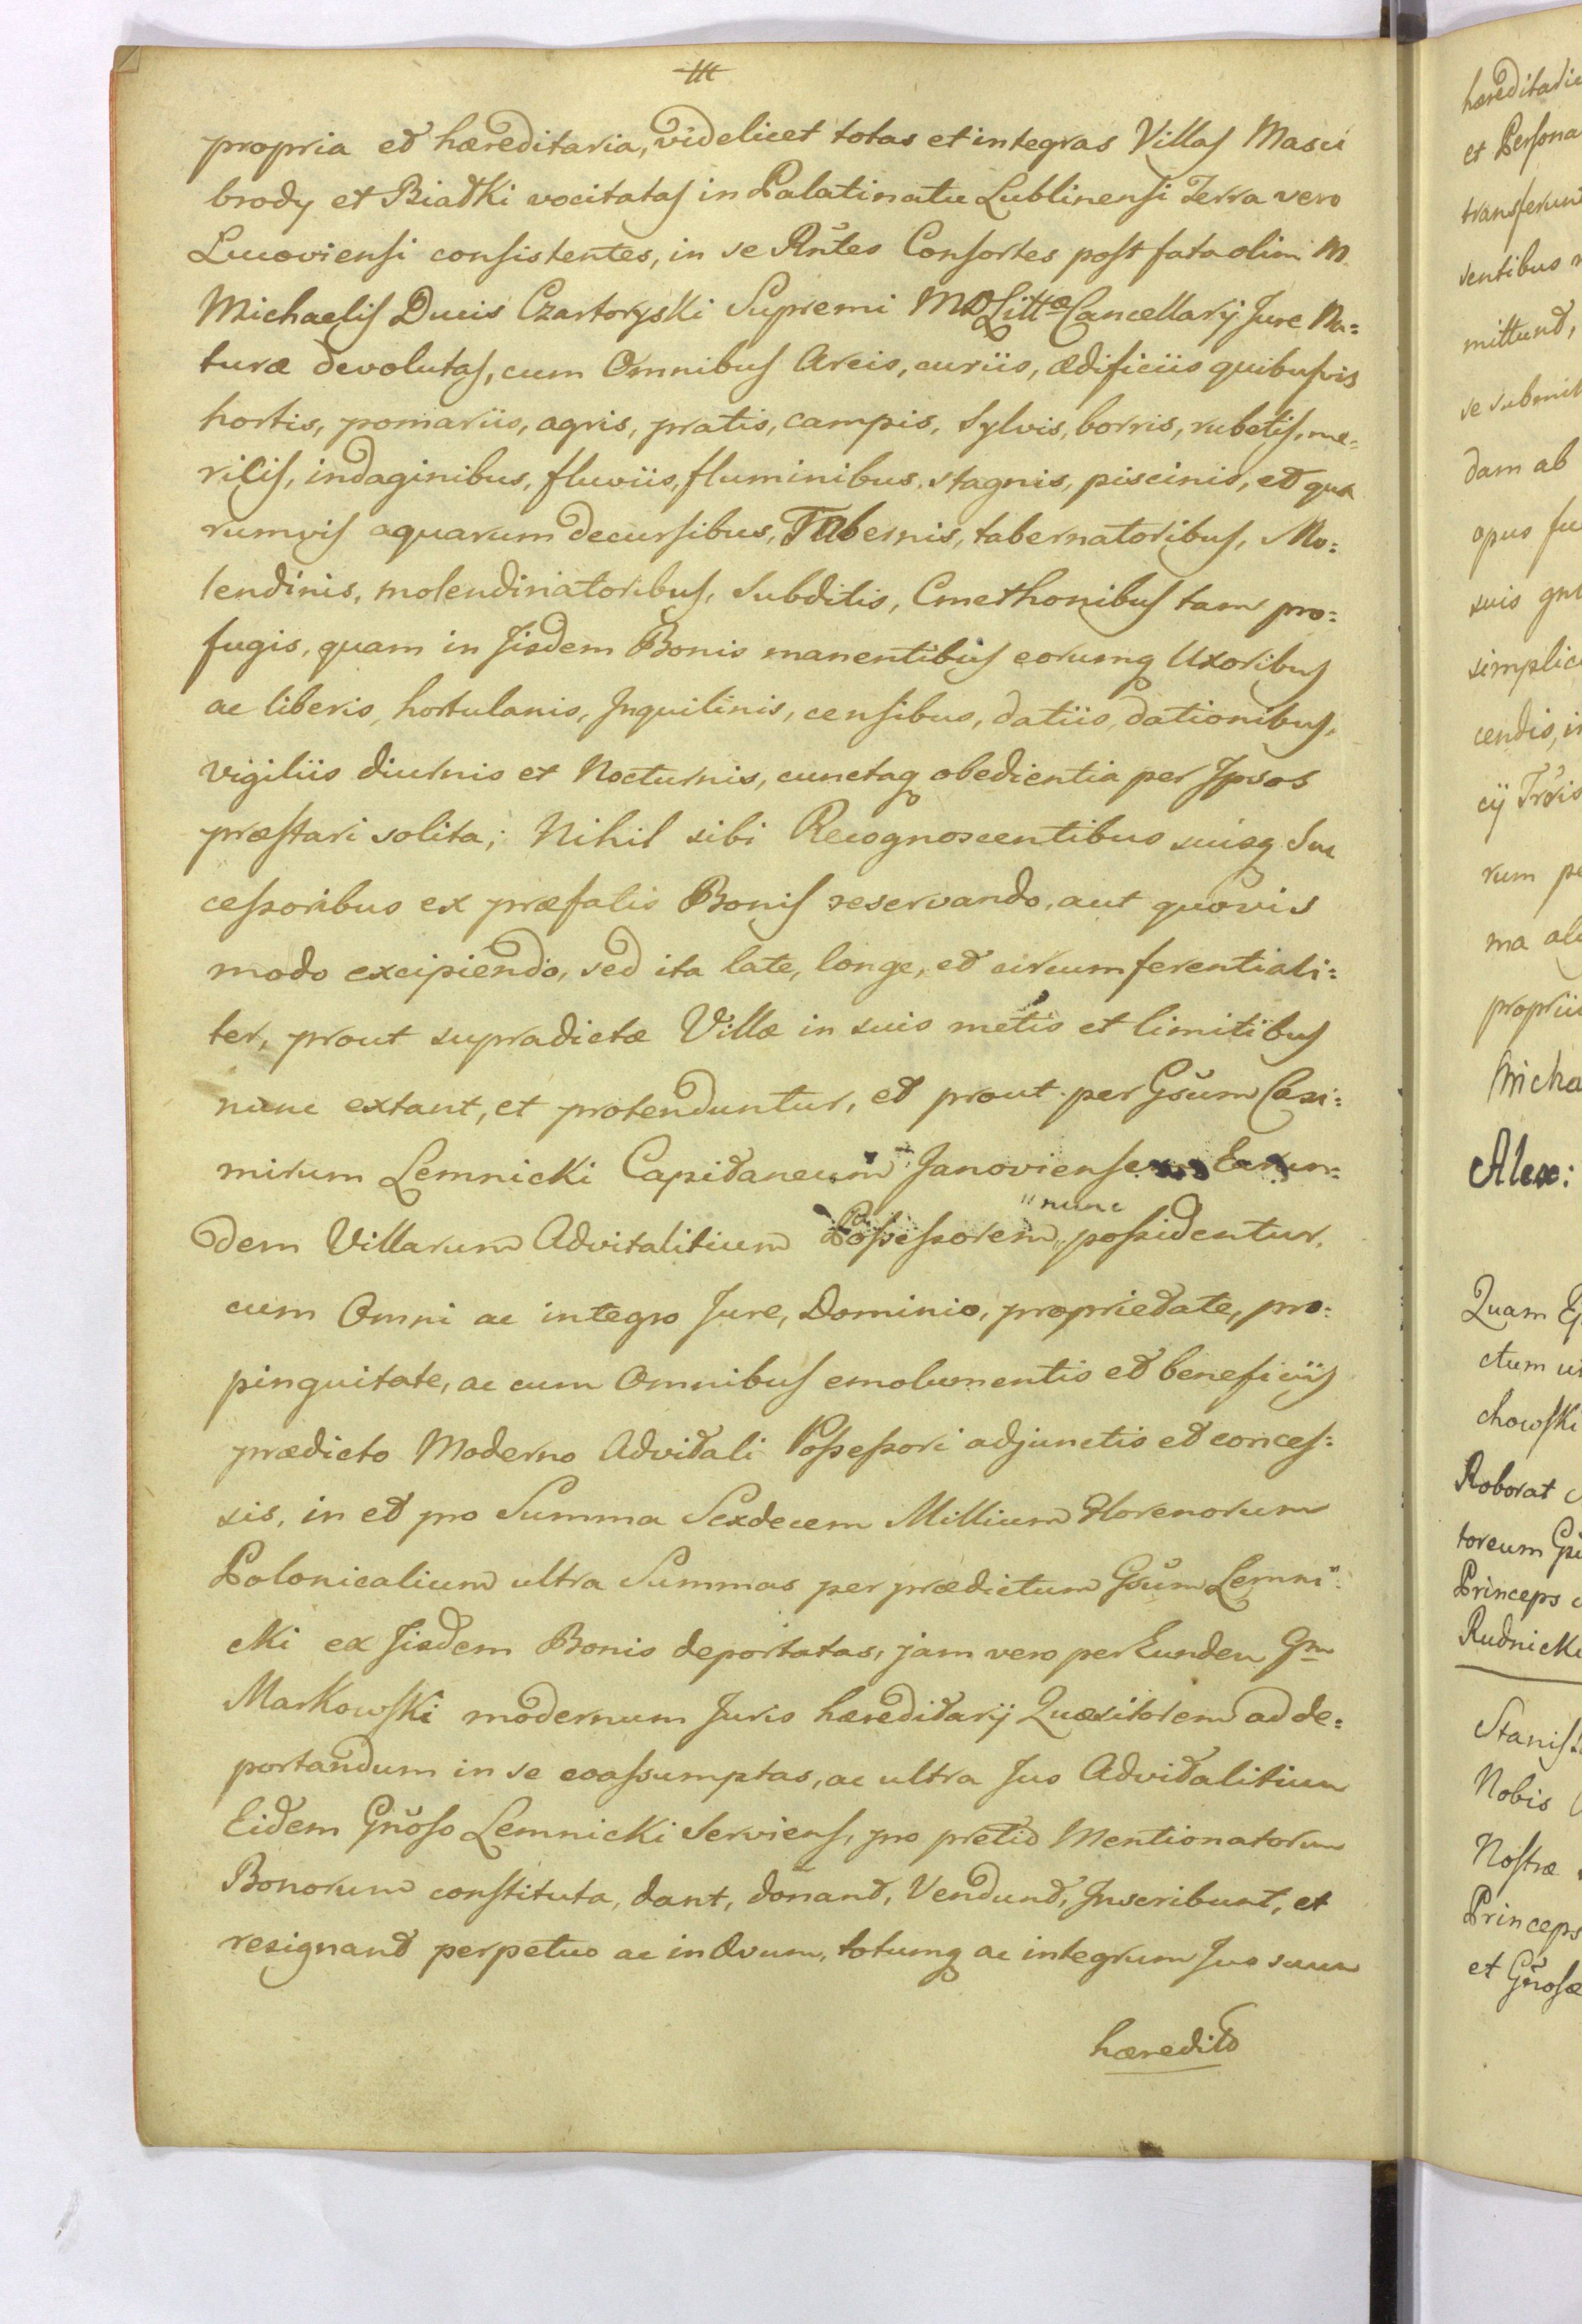 propria et hæreditaria, videlicet totas et integras Villas Masci
brody et Białki vocitatas in Palatinatu Lublinensi Terra vero
Lucoviensi consistentes, in se Rñtes Consortes post fata olim M.
Michaelis Ducis Czartoryski Supremi MDLittæ Cancellarij Jure Na=
turæ devolutas, cum Omnibus Areis, curiis, ædificiis quibusvis
hortis, pomariis, agris, pratis, campis, Sylvis, borris, rubetis, me=
ricis, indaginibus, fluviis, fluminibus, stagnis, piscinis, et qua
rumvis aquarum decursibus, Tabernis, tabernatoribus, Mo:
lendinis, molendinatoribus, Subditis, Cmethonibus tam pro:
fugis, quam in Jisdem Bonis manentibus eorumq Uxoribus
ac liberis, hortulanis, Inquilinis, censibus, datiis, dationibus,
vigiliis diurnis et Nocturnis, cunctaq obedientia per Ipsos
præstari solita; Nihil sibi Recognoscentibus suisq Suc
cessoribus ex præfatis Bonis reservando, aut quovis
modo excipiendo, sed ita late, longe, et circumferentiali:
ter, prout supradictæ Villæ in suis metis et limitibus
nunc extant, et protenduntur, et prout per Gsum Casi:
mirum Lemnicki Capitaneum Janoviensem Earun:
dem Villarum Advitalitium Possessorem "nunc" possidentur,
cum Omni ac integro Jure, Dominio, proprietate, pro:
pinquitate, ac cum Omnibus emolumentis et beneficiis
prædicto Moderno Advitali Possessori adjunctis et conces:
sis, in et pro Summa Sexdecem Millium Florenorum
Polonicalium ultra Summas per prædictum Gsum Lemni:
cki ex Jisdem Bonis deportatas, jam vero per Eundem Gm
Markowski modernum Juris hæreditarij Quæsitorem ad de:
portandum in se coassumptas, ac ultra Jus Advitalitium
Eidem Gnoso Lemnicki Serviens, pro pretio Mentionatorum
Bonorum constituta, dant, donant, Vendunt, Inscribunt, et
resignant perpetuo ac in Ævum, totumq ac integrum Jus suum
hæredito
hæreditari
et Persona
transferunt
sentibus
mittunt,
se submit
dam ab
opus fu
suis
simplic
cendis, in
cij
rum pe
ma
propriis
Micha
Alex:
Quam
ctum
chowski
Roborat
toreum
Princeps
Rudnicki
Stanis
Nobis
Nostræ
Princeps
et Gnosæ